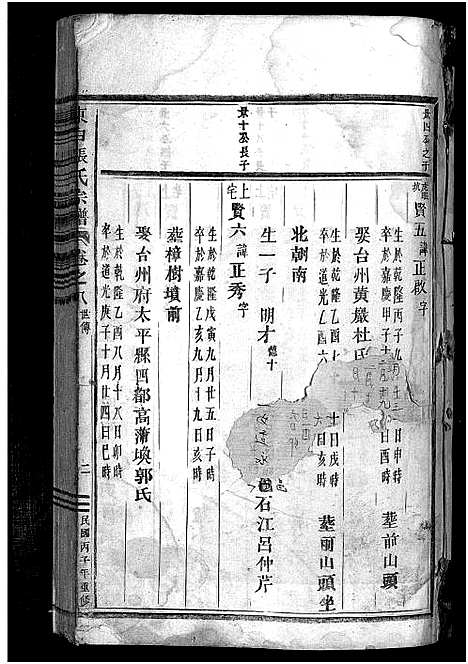 賢五 諱 正啟 字
生於乾隆丙子九月
卒於嘉慶甲子十二月
日申時
日酉時 葬前山頭
娶台州黃巖杜氏
生於乾隆乙酉
卒於道光乙酉六
十日戌時
六日亥時 葬前山頭坐
北朝南
生一子 明才 德十
石江呂仲芹
景十公長子
上宅 賢六 諱 正秀 字
生於乾隆戊寅九月廿五日子時
卒於嘉慶乙亥九月十九日亥時
葬樟樹墳前
娶台州府太平縣四都高蒲墺郭氏
生於乾隆乙酉八月十八日卯時
卒於道光庚子十月廿四日巳時
張氏宗譜 卷之八 世傳 二 民國丙子年重修